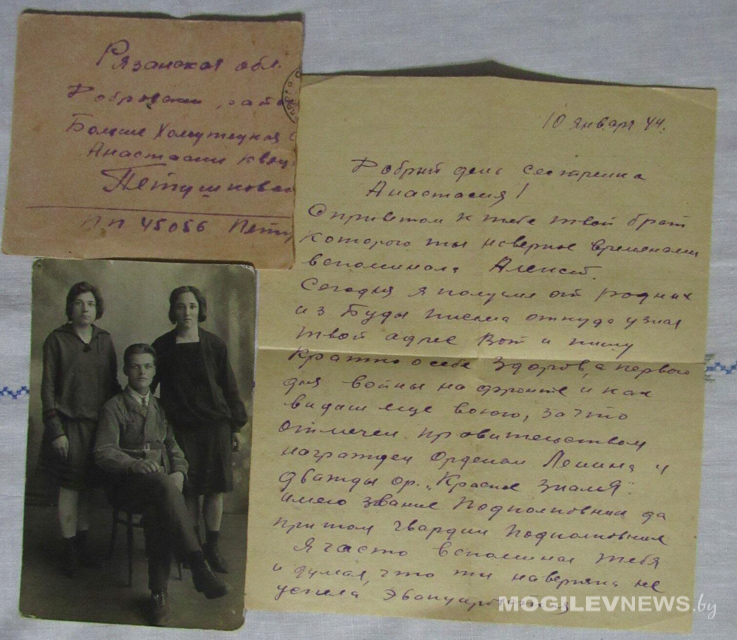 Рязанская обл.
Больше Хомутецкая
Анастасии
Петушковой
ПП 45056 Пету
10 января 44.
Добрый день сестренка
Анастасия!
С приветом к тебе твой брат
которого ты наверное временами
вспоминала Алексей.
Сегодня я получил от родных
из Буды письмо откуда узнал
твой адрес Вот и пишу
Кратко о себе Здоров, с первого
дня войны на фронте и как
видиш еще воюю, за что
отмечен правительством
награжден Орденом Ленина и
дважды ор. „Красное Знамя"
имею звание Подполковник да
притом Гвардии Подполковник
Я часто вспоминал тебя
и думал, что ты наверняка не
успела
MOGILEVNEWS.by